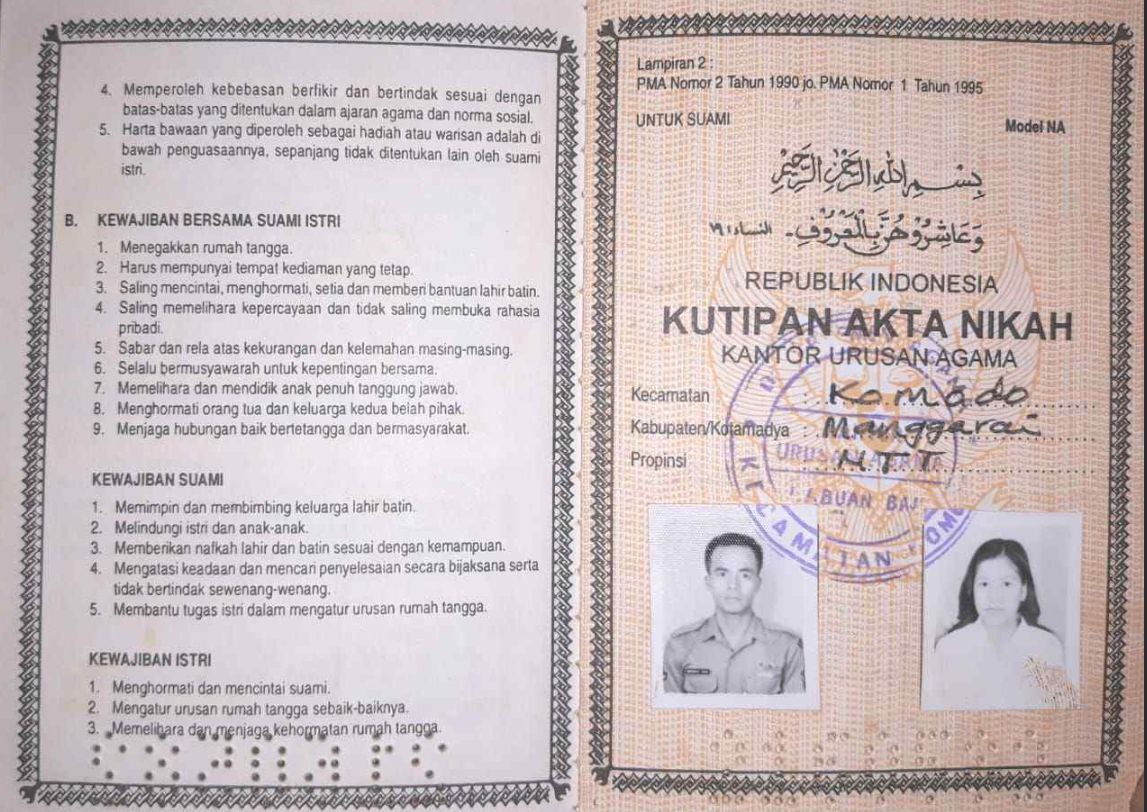 4. Memperoleh kebebasan berfikir dan bertindak sesuai dengan
batas-batas yang ditentukan dalam ajaran agama dan norma sosial.
5. Harta bawaan yang diperoleh sebagai hadiah atau warisan adalah di
bawah penguasaannya, sepanjang tidak ditentukan lain oleh suami
istri.
B. KEWAJIBAN BERSAMA SUAMI ISTRI
1. Menegakkan rumah tangga.
2. Harus mempunyai tempat kediaman yang tetap.
3. Saling mencintai, menghormati, setia dan memberi bantuan lahir batin.
4. Saling memelihara kepercayaan dan tidak saling membuka rahasia
pribadi.
5. Sabar dan rela atas kekurangan dan kelemahan masing-masing.
6. Selalu bermusyawarah untuk kepentingan bersama.
7. Memelihara dan mendidik anak penuh tanggung jawab.
8. Menghormati orang tua dan keluarga kedua belah pihak.
9. Menjaga hubungan baik bertetangga dan bermasyarakat.
KEWAJIBAN SUAMI
1. Memimpin dan membimbing keluarga lahir batin.
2. Melindungi istri dan anak-anak.
3. Memberikan nafkah lahir dan batin sesuai dengan kemampuan.
4. Mengatasi keadaan dan mencari penyelesaian secara bijaksana serta
tidak bertindak sewenang-wenang.
5. Membantu tugas istri dalam mengatur urusan rumah tangga.
KEWAJIBAN ISTRI
1. Menghormati dan mencintai suami.
2. Mengatur urusan rumah tangga sebaik-baiknya.
3. Memelihara dan menjaga kehormatan rumah tangga.
Lampiran 2 :
PMA Nomor 2 Tahun 1990 jo. PMA Nomor 1 Tahun 1995
UNTUK SUAMI
Model NA
بِسْمِ اللهِ الرَّحْمٰنِ الرَّحِيْمِ
وَعَاشِرُوْهُنَّ بِالْمَعْرُوْفِ - النساء : ١٩
REPUBLIK INDONESIA
KUTIPAN AKTA NIKAH
KANTOR URUSAN AGAMA
Kecamatan : Komodo
Kabupaten/Kotamadya : Manggarai
Propinsi : NTT
URUSAN AGAMA
KECAMATAN